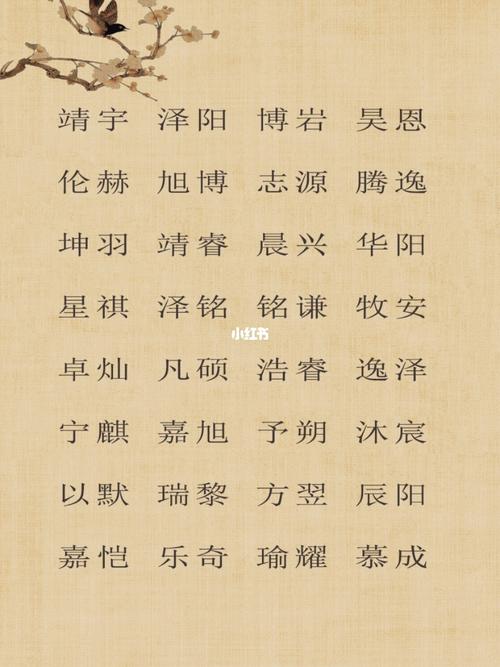 靖宇 泽阳 博岩 昊恩
伦赫 旭博 志源 腾逸
坤羽 靖睿 晨兴 华阳
星祺 泽铭 铭谦 牧安
小红书
卓灿 凡硕 浩睿 逸泽
宁麒 嘉旭 予朔 沐宸
以默 瑞黎 方翌 辰阳
嘉恺 乐奇 瑜耀 慕成